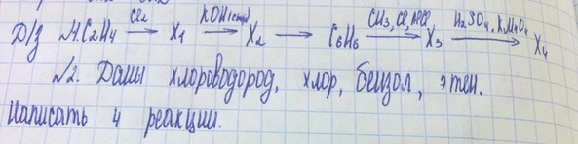 Д/з №1. C2H4 —Cl2→ X1 —KOH(спирт)→ X2 → C6H6 —CH3Cl, AlCl3→ X3 —H2SO4, KMnO4→ X4
№2. Даны хлороводород, хлор, бензол, этен.
Написать 4 реакции.